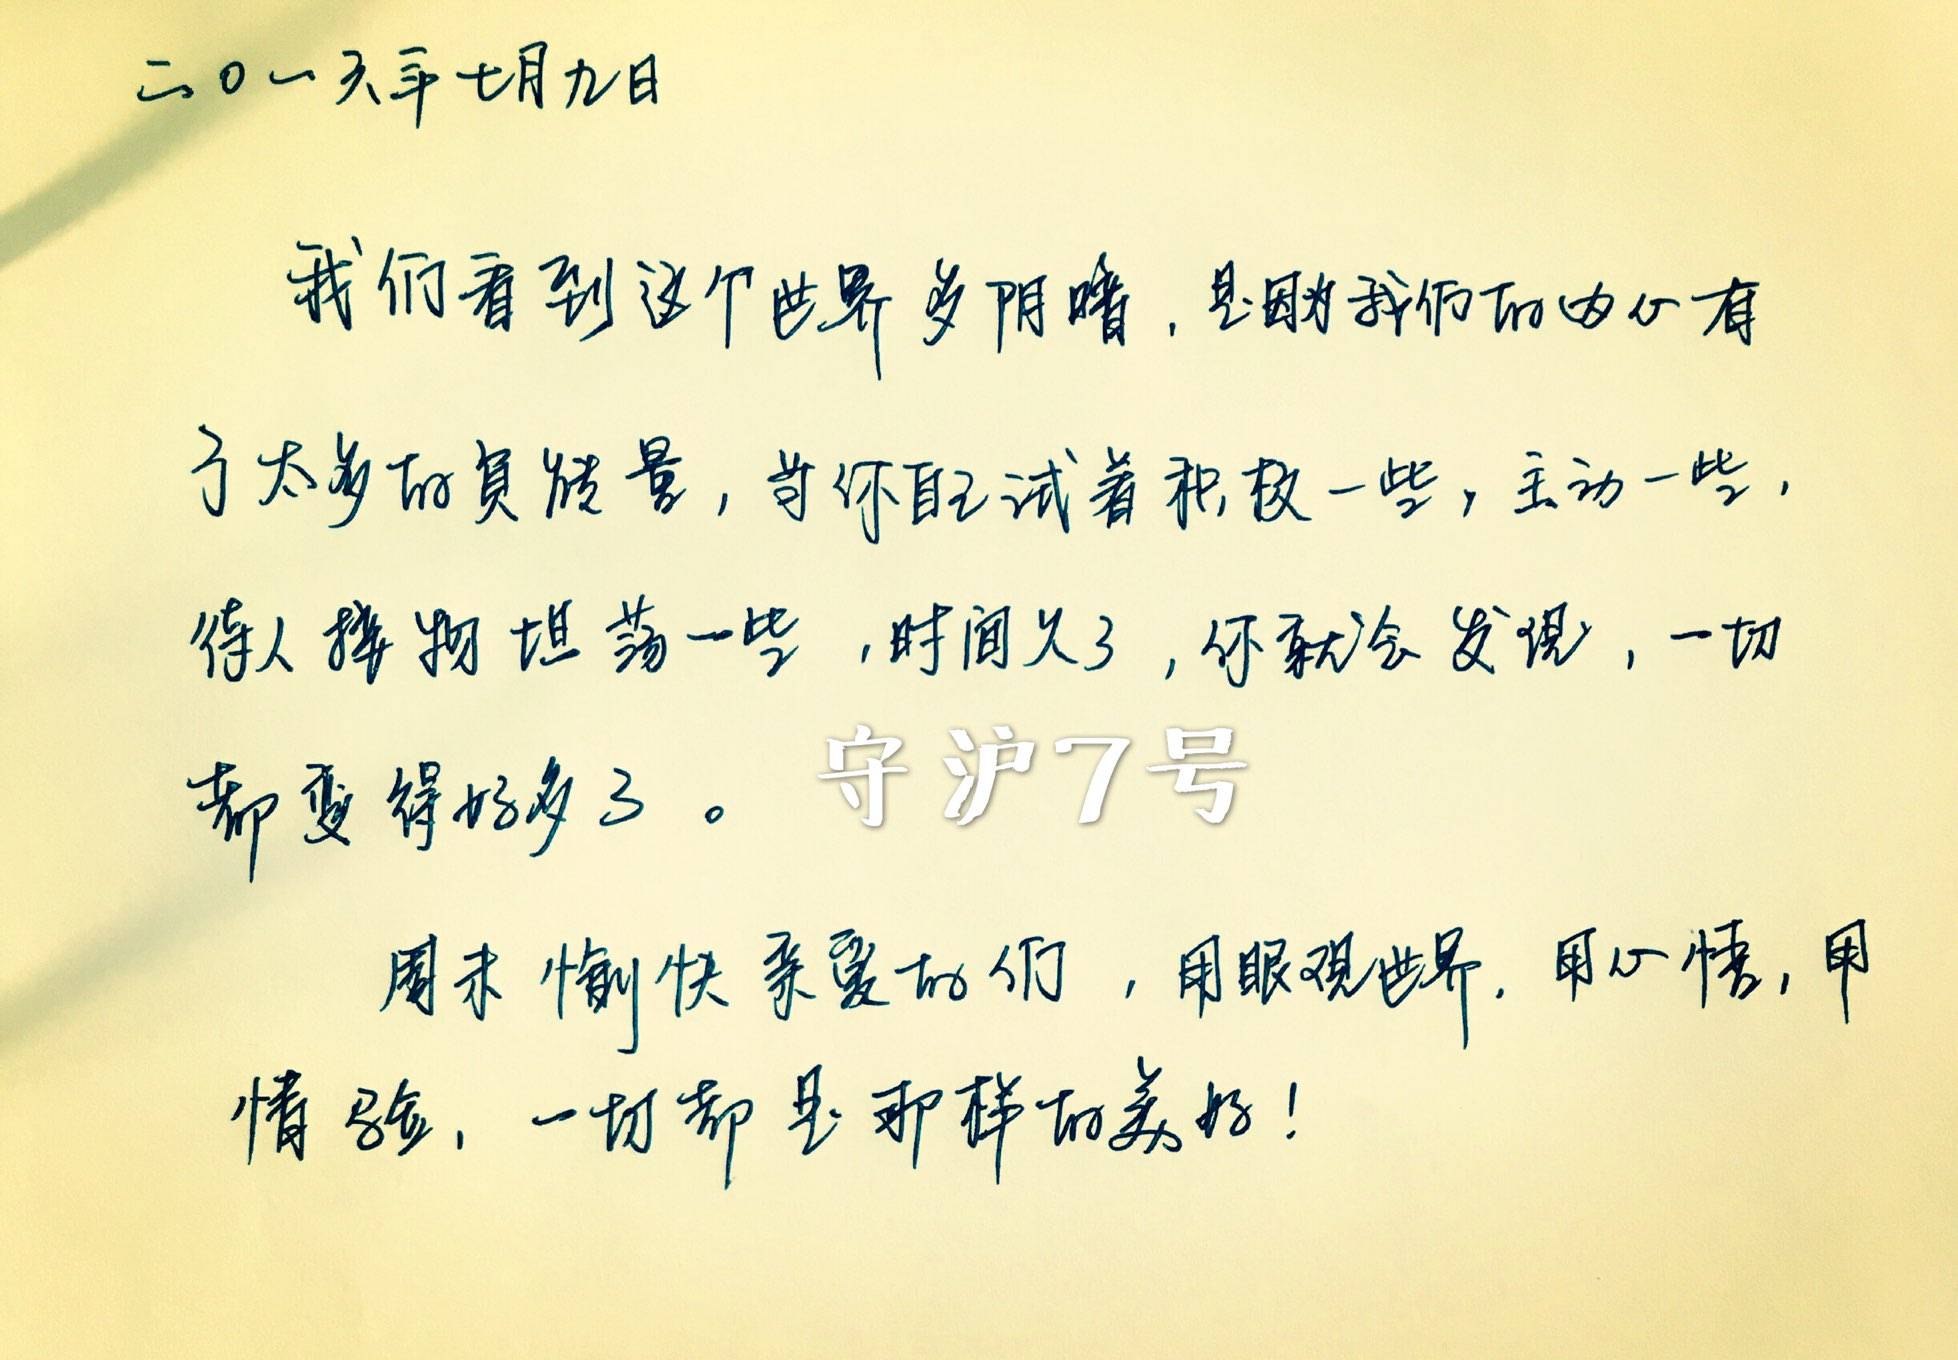 二〇一六年七月九日
我们看到这个世界多阴暗,是因为我们的内心有
了太多的负能量,当你自己试着积极一些,主动一些,
待人接物坦荡一些,时间久了,你就会发现,一切
都变得好多了。
守沪7号
周末愉快亲爱的们,用眼观世界,用心悟,用
情验,一切都是那样的美好!